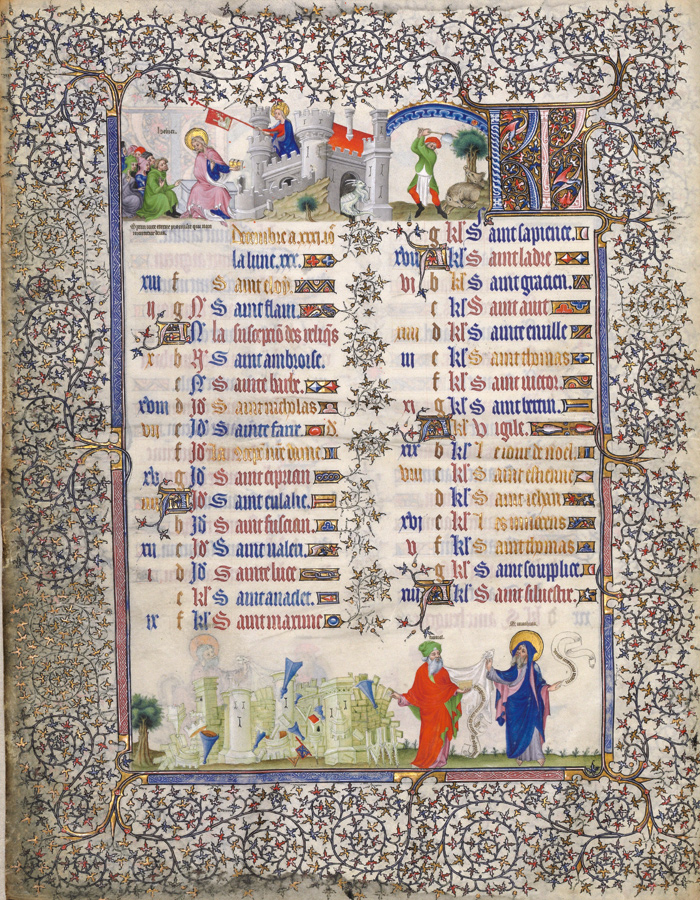 Decembre a xxxi io
la lune xxx.
xiii f Saint eloy.
ii g N Saint flaui.
A N la suscepcio des reliqs
x b N Saint ambroise.
c N Sainte barbe.
xviii d Id Saint nicholas
vii e Id Sainte fare.
f Id
xv g Id Saint ciprian
A Id Sainte eulalie.
b Id Saint fuscian
xii c Id Saint valeri.
i d Id Sainte luce
e kl Saint anaclet.
ix f kl Saint maxime
g kl Saint sapience.
xvii A kl Saint ladre
vi b kl Saint gracien.
c kl Saint
xiiii d kl Saint
iii e kl Saint thomas
f kl Saint victor.
xi g kl Saint bertin.
A kl Vigile.
xix b kl Le iour de noel.
viii c kl Saint estienne
d kl Saint iehan
xvi e kl Les innocens
v f kl Saint thomas
g kl Saint soupplice.
xiii A kl Saint siluestre.